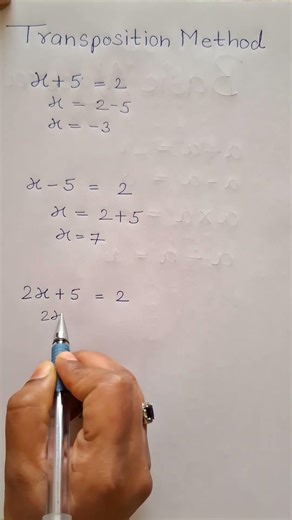 Transposition Method
x + 5 = 2
x = 2 - 5
x = -3
x - 5 = 2
x = 2 + 5
x = 7
2x + 5 = 2
2x